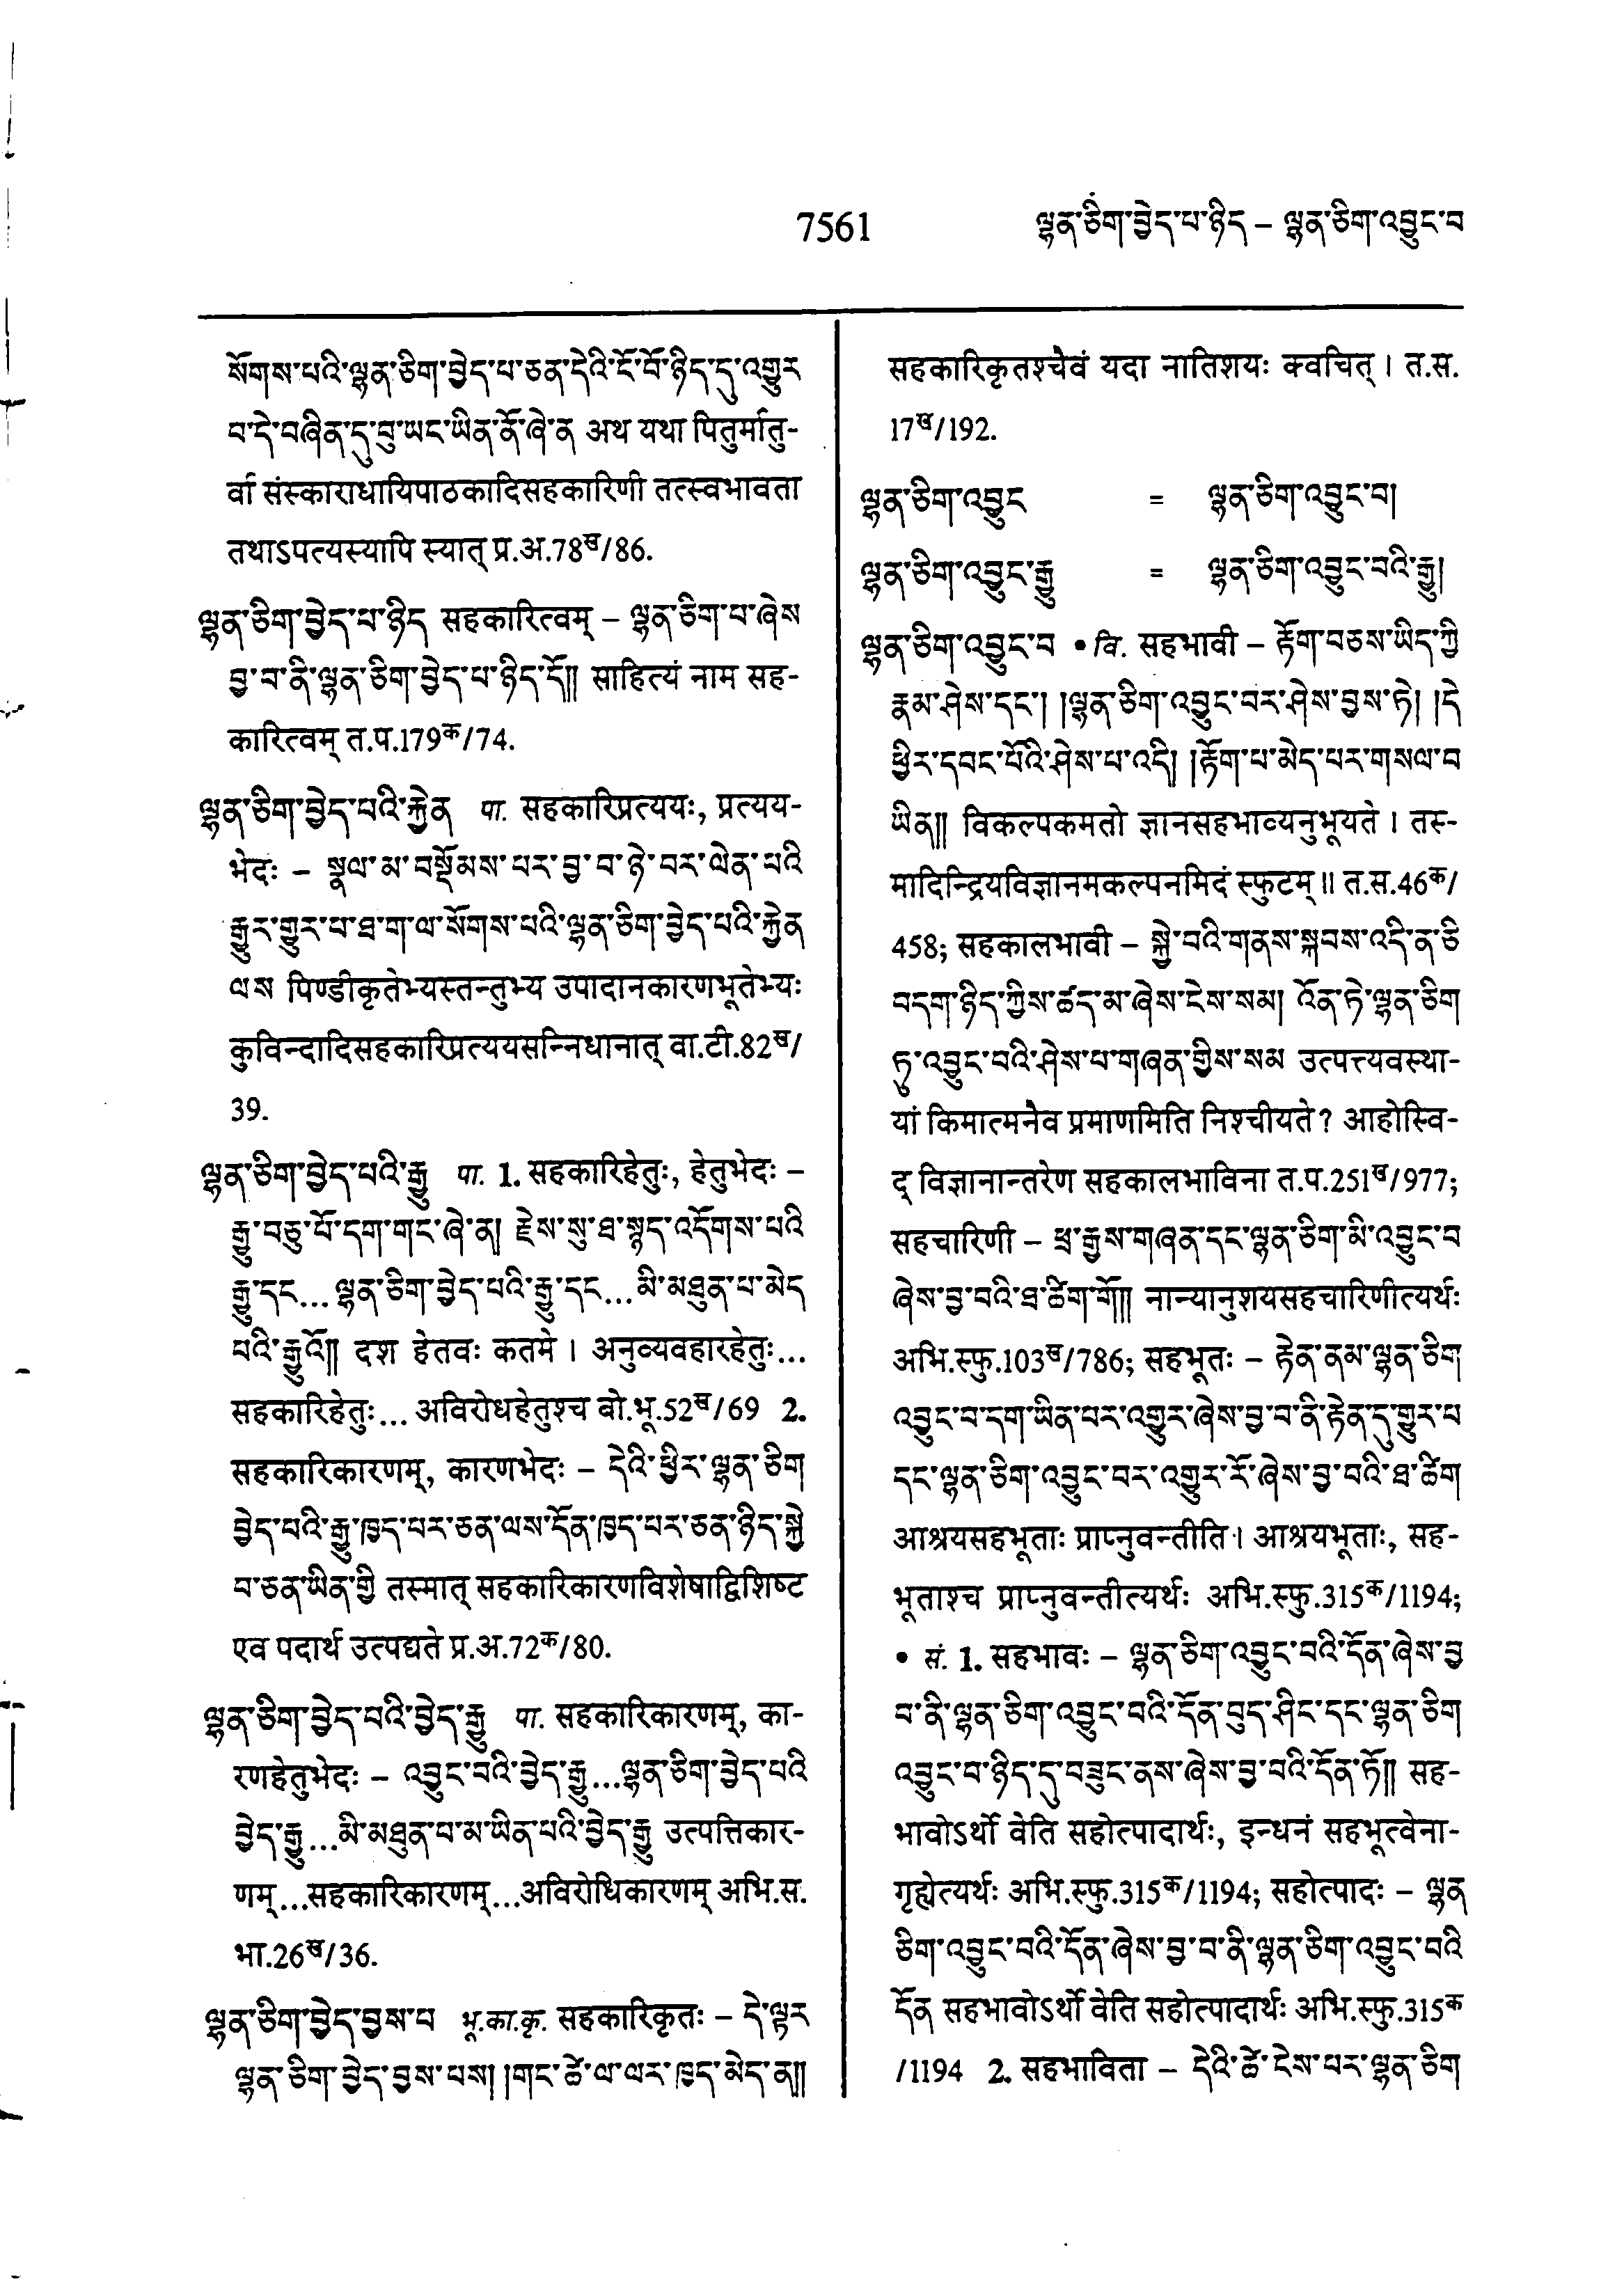 7561
ལྷན་ཅིག་བྱེད་པ་ཉིད – ལྷན་ཅིག་འབྱུང་བ
སོགས་པའི་ལྷན་ཅིག་བྱེད་པ་ཅན་དེའི་ངོ་བོ་ཉིད་དུ་འགྱུར
བ་དེ་བཞིན་དུ་བུ་ཡང་ཡིན་ནོ་ཞེ་ན अथ यथा पितुर्मातु-
र्वा संस्काराधायिपाठकादिसहकारिणी तत्स्वभावता
तथाऽपत्यस्यापि स्यात् प्र.अ.78ख/86.
ལྷན་ཅིག་བྱེད་པ་ཉིད सहकारित्वम् – ལྷན་ཅིག་པ་ཞེས
བྱ་བ་ནི་ལྷན་ཅིག་བྱེད་པ་ཉིད་དོ།། साहित्यं नाम सह-
कारित्वम् त.प.179क/74.
ལྷན་ཅིག་བྱེད་པའི་རྐྱེན पा. सहकारिप्रत्ययः, प्रत्यय-
भेदः – སྣལ་མ་བསྡོམས་པར་བྱ་བ་ཉེ་བར་ལེན་པའི
རྒྱུར་གྱུར་པ་ཐ་ག་ལ་སོགས་པའི་ལྷན་ཅིག་བྱེད་པའི་རྐྱེན
ལས पिण्डीकृतेभ्यस्तन्तुभ्य उपादानकारणभूतेभ्यः
कुविन्दादिसहकारिप्रत्ययसन्निधानात् वा.टी.82ख/
39.
ལྷན་ཅིག་བྱེད་པའི་རྒྱུ पा. 1. सहकारिहेतुः, हेतुभेदः –
རྒྱུ་བཅུ་པོ་དག་གང་ཞེ་ན། རྗེས་སུ་ཐ་སྙད་འདོགས་པའི
རྒྱུ་དང...ལྷན་ཅིག་བྱེད་པའི་རྒྱུ་དང...མི་མཐུན་པ་མེད
པའི་རྒྱུའོ།། दश हेतवः कतमे । अनुव्यवहारहेतुः...
सहकारिहेतुः... अविरोधहेतुश्च बो.भू.52ख/69 2.
सहकारिकारणम्, कारणभेदः – དེའི་ཕྱིར་ལྷན་ཅིག
བྱེད་པའི་རྒྱུ་ཁྱད་པར་ཅན་ལས་དོན་ཁྱད་པར་ཅན་ཉིད་སྐྱེ
བ་ཅན་ཡིན་གྱི तस्मात् सहकारिकारणविशेषाद्विशिष्ट
एव पदार्थ उत्पद्यते प्र.अ.72क/80.
ལྷན་ཅིག་བྱེད་པའི་བྱེད་རྒྱུ पा. सहकारिकारणम्, का-
रणहेतुभेदः – འབྱུང་བའི་བྱེད་རྒྱུ...ལྷན་ཅིག་བྱེད་པའི
བྱེད་རྒྱུ...མི་མཐུན་པ་མ་ཡིན་པའི་བྱེད་རྒྱུ उत्पत्तिकार-
णम्...सहकारिकारणम्...अविरोधिकारणम् अभि.स.
भा.26ख/36.
ལྷན་ཅིག་བྱེད་བྱས་པ भू.का.कृ. सहकारिकृतः – དེ་ལྟར
ལྷན་ཅིག་བྱེད་བྱས་པས། །གང་ཚེ་ལ་ལར་ཁྱད་མེད་ན།།
सहकारिकृतश्चैवं यदा नातिशयः क्वचित् । त.स.
17ख/192.
ལྷན་ཅིག་འབྱུང = ལྷན་ཅིག་འབྱུང་བ།
ལྷན་ཅིག་འབྱུང་རྒྱུ = ལྷན་ཅིག་འབྱུང་བའི་རྒྱུ།
ལྷན་ཅིག་འབྱུང་བ • वि. सहभावी – རྟོག་བཅས་ཡིད་ཀྱི
རྣམ་ཤེས་དང་། །ལྷན་ཅིག་འབྱུང་བར་ཤེས་བྱས་ཏེ། །དེ
ཕྱིར་དབང་པོའི་ཤེས་པ་འདི། །རྟོག་པ་མེད་པར་གསལ་བ
ཡིན།། विकल्पकमतो ज्ञानसहभाव्यनुभूयते । तस्-
मादिन्द्रियविज्ञानमकल्पनमिदं स्फुटम् ॥ त.स.46क/
458; सहकालभावी – སྐྱེ་བའི་གནས་སྐབས་འདི་ན་ཅི
བདག་ཉིད་ཀྱིས་ཚད་མ་ཞེས་ངེས་སམ། འོན་ཏེ་ལྷན་ཅིག
ཏུ་འབྱུང་བའི་ཤེས་པ་གཞན་གྱིས་སམ उत्पत्त्यवस्था-
यां किमात्मनैव प्रमाणमिति निश्चीयते? आहोस्वि-
द् विज्ञानान्तरेण सहकालभाविना त.प.251ख/977;
सहचारिणी – ཕྲ་རྒྱས་གཞན་དང་ལྷན་ཅིག་མི་འབྱུང་བ
ཞེས་བྱ་བའི་ཐ་ཚིག་གོ།། नान्यानुशयसहचारिणीत्यर्थः
अभि.स्फु.103ख/786; सहभूतः – རྟེན་ནམ་ལྷན་ཅིག
འབྱུང་བ་དག་ཡིན་པར་འགྱུར་ཞེས་བྱ་བ་ནི་རྟེན་དུ་གྱུར་པ
དང་ལྷན་ཅིག་འབྱུང་བར་འགྱུར་རོ་ཞེས་བྱ་བའི་ཐ་ཚིག
आश्रयसहभूताः प्राप्नुवन्तीति। आश्रयभूताः, सह-
भूताश्च प्राप्नुवन्तीत्यर्थः अभि.स्फु.315क/1194;
• सं. 1. सहभावः – ལྷན་ཅིག་འབྱུང་བའི་དོན་ཞེས་བྱ
བ་ནི་ལྷན་ཅིག་འབྱུང་བའི་དོན་བུད་ཤིང་དང་ལྷན་ཅིག
འབྱུང་བ་ཉིད་དུ་བཟུང་ནས་ཞེས་བྱ་བའི་དོན་ཏོ།། सह-
भावोऽर्थो वेति सहोत्पादार्थः, इन्धनं सहभूत्वेना-
गृह्येत्यर्थः अभि.स्फु.315क/1194; सहोत्पादः – ལྷན
ཅིག་འབྱུང་བའི་དོན་ཞེས་བྱ་བ་ནི་ལྷན་ཅིག་འབྱུང་བའི
དོན सहभावोऽर्थो वेति सहोत्पादार्थः अभि.स्फु.315क
/1194 2. सहभाविता – དེའི་ཚེ་ངེས་པར་ལྷན་ཅིག